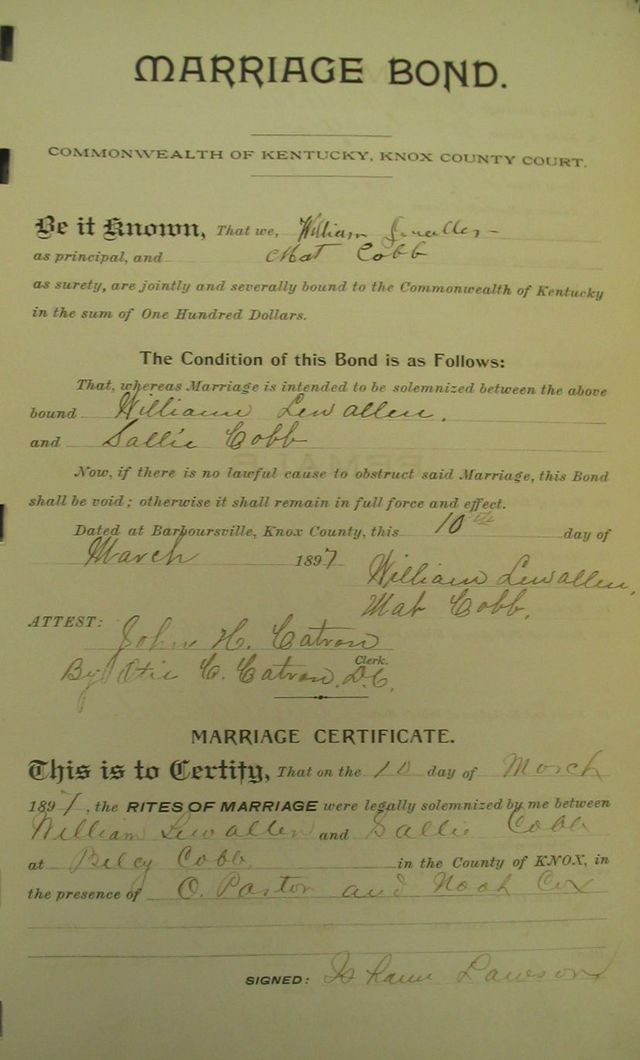 MARRIAGE BOND.
COMMONWEALTH OF KENTUCKY, KNOX COUNTY COURT.
Be it Known, That we, William Lewallen
as principal, and Mat Cobb
as surety, are jointly and severally bound to the Commonwealth of Kentucky
in the sum of One Hundred Dollars.
The Condition of this Bond is as Follows:
That, whereas Marriage is intended to be solemnized between the above
bound William Lewallen.
and Sallie Cobb
Now, if there is no lawful cause to obstruct said Marriage, this Bond
shall be void; otherwise it shall remain in full force and effect.
Dated at Barboursville, Knox County, this 10th day of
March 1897
William Lewallen,
Mat Cobb.
ATTEST:
John H. Catron
Clerk.
By Otie C. Catron, D.C.
MARRIAGE CERTIFICATE.
This is to Certify, That on the 10 day of March
1897, the RITES OF MARRIAGE were legally solemnized by me between
William Lewallen and Sallie Cobb
at Cobb in the County of KNOX, in
the presence of O. Pastor and Noah Cox
SIGNED: Isham Lawson